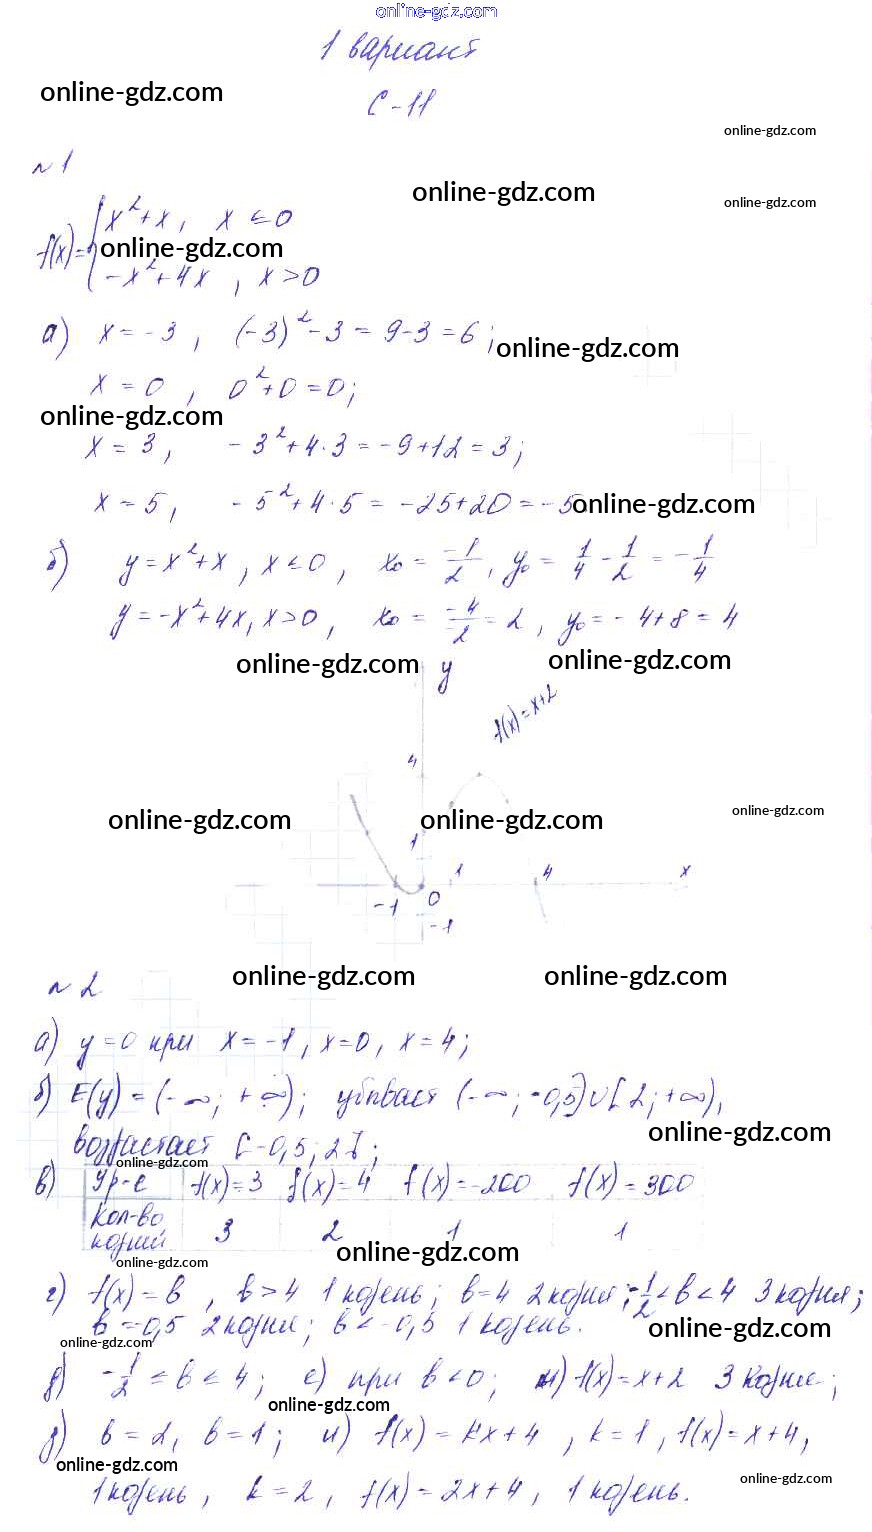 online-gdz.com
1 вариант
online-gdz.com
С-11
online-gdz.com
№1
online-gdz.com
online-gdz.com
f(x)={x²+x, x≤0
online-gdz.com
-x²+4x, x>0
а) x=-3, (-3)²-3=9-3=6;
online-gdz.com
x=0, 0²+0=0;
online-gdz.com
x=3, -3²+4·3=-9+12=3;
x=5, -5²+4·5=-25+20=-5
online-gdz.com
б) y=x²+x, x≤0, x₀=-1/2, y₀=1/4-1/2=-1/4
y=-x²+4x, x>0, x₀=-4/-2=2, y₀=-4+8=4
online-gdz.com
y
online-gdz.com
f(x)=x+2
4
online-gdz.com
online-gdz.com
online-gdz.com
1
1 4 x
-1 0
-1
№2
online-gdz.com
online-gdz.com
а) y=0 при x=-1, x=0, x=4;
б) E(y)=(-∞;+∞); убывает (-∞;-0,5]∪[2;+∞),
online-gdz.com
возрастает [-0,5;2];
online-gdz.com
в) Ур-е f(x)=3 f(x)=4 f(x)=-200 f(x)=300
Кол-во
корней 3 2 1 1
online-gdz.com
online-gdz.com
г) f(x)=b, b>4 1 корень; b=4 2 корня; -1/2<b<4 3 корня;
b=-0,5 2 корня; b<-0,5 1 корень.
online-gdz.com
online-gdz.com
д) -1/2≤b≤4; е) при b<0; ж) f(x)=x+2 3 корня;
online-gdz.com
з) b=2, b=1; и) f(x)=kx+4, k=1, f(x)=x+4,
online-gdz.com
online-gdz.com
1 корень, k=2, f(x)=2x+4, 1 корень.